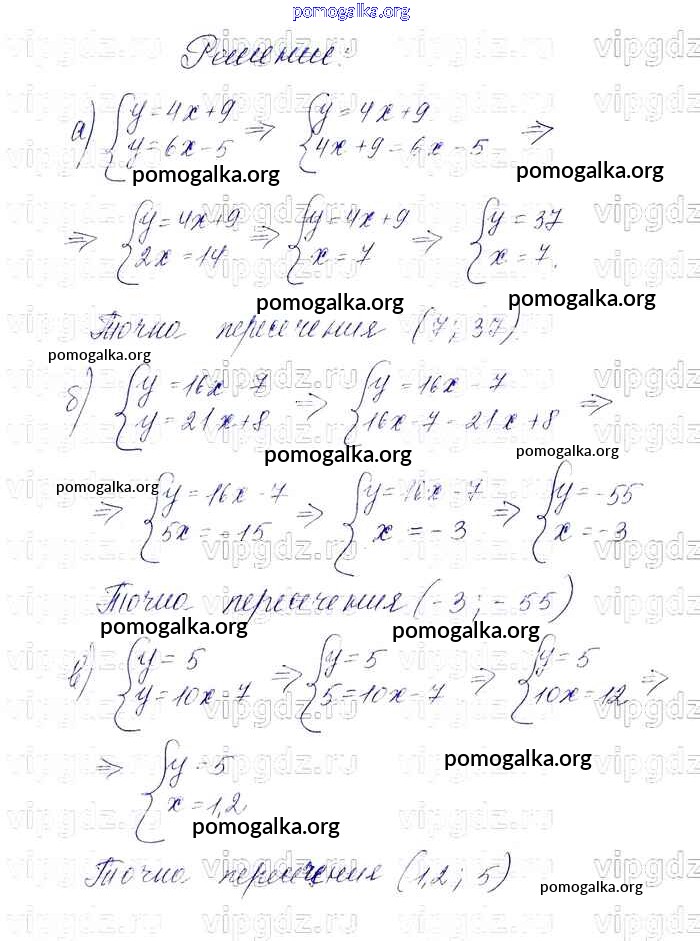 pomogalka.org
Решение:
а) { y = 4x + 9 ⇒ { y = 4x + 9 ⇒
{ y = 6x - 5 { 4x + 9 = 6x - 5
pomogalka.org pomogalka.org
⇒ { y = 4x + 9 ⇒ { y = 4x + 9 ⇒ { y = 37
{ 2x = 14 { x = 7 { x = 7.
pomogalka.org pomogalka.org
Точка пересечения (7; 37).
pomogalka.org
б) { y = 16x - 7 ⇒ { y = 16x - 7 ⇒
{ y = 21x + 8 { 16x - 7 - 21x + 8
pomogalka.org pomogalka.org
pomogalka.org
⇒ { y = 16x - 7 ⇒ { y = 16x - 7 ⇒ { y = -55
{ 5x = -15 { x = -3 { x = -3
Точка пересечения (-3; -55)
pomogalka.org pomogalka.org
в) { y = 5 ⇒ { y = 5 ⇒ { y = 5 ⇒
{ y = 10x - 7 { 5 = 10x - 7 { 10x = 12
⇒ { y = 5
pomogalka.org
{ x = 1,2
pomogalka.org
Точка пересечения (1,2; 5)
pomogalka.org
vipgdz.ru